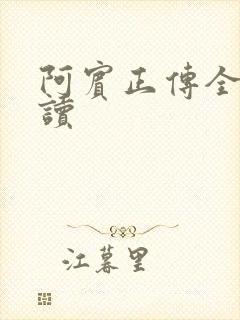 阿賓正傳全
讀
江暮里